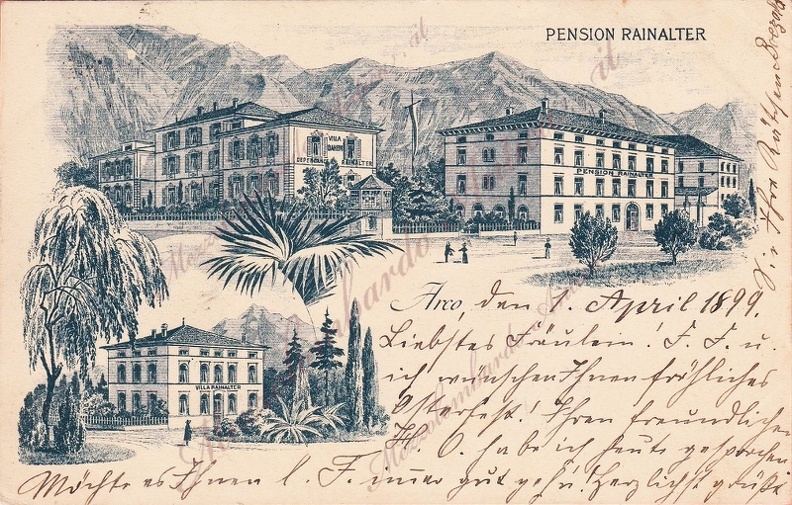 PENSION RAINALTER
VILLA
DEPENDANCE RAINALTER
PENSION RAINALTER
VILLA RAINALTER
Arco, den 1. April 1899.
Liebstes Fräulein! F. F. u.
ich wünschen Ihnen fröhliches
Osterfest! Ihren freundlichen
H. O. habe ich heute gesprochen
Möchte es Ihnen l. F. immer gut gehn! Herzlichst grüßt
Sie Ihre